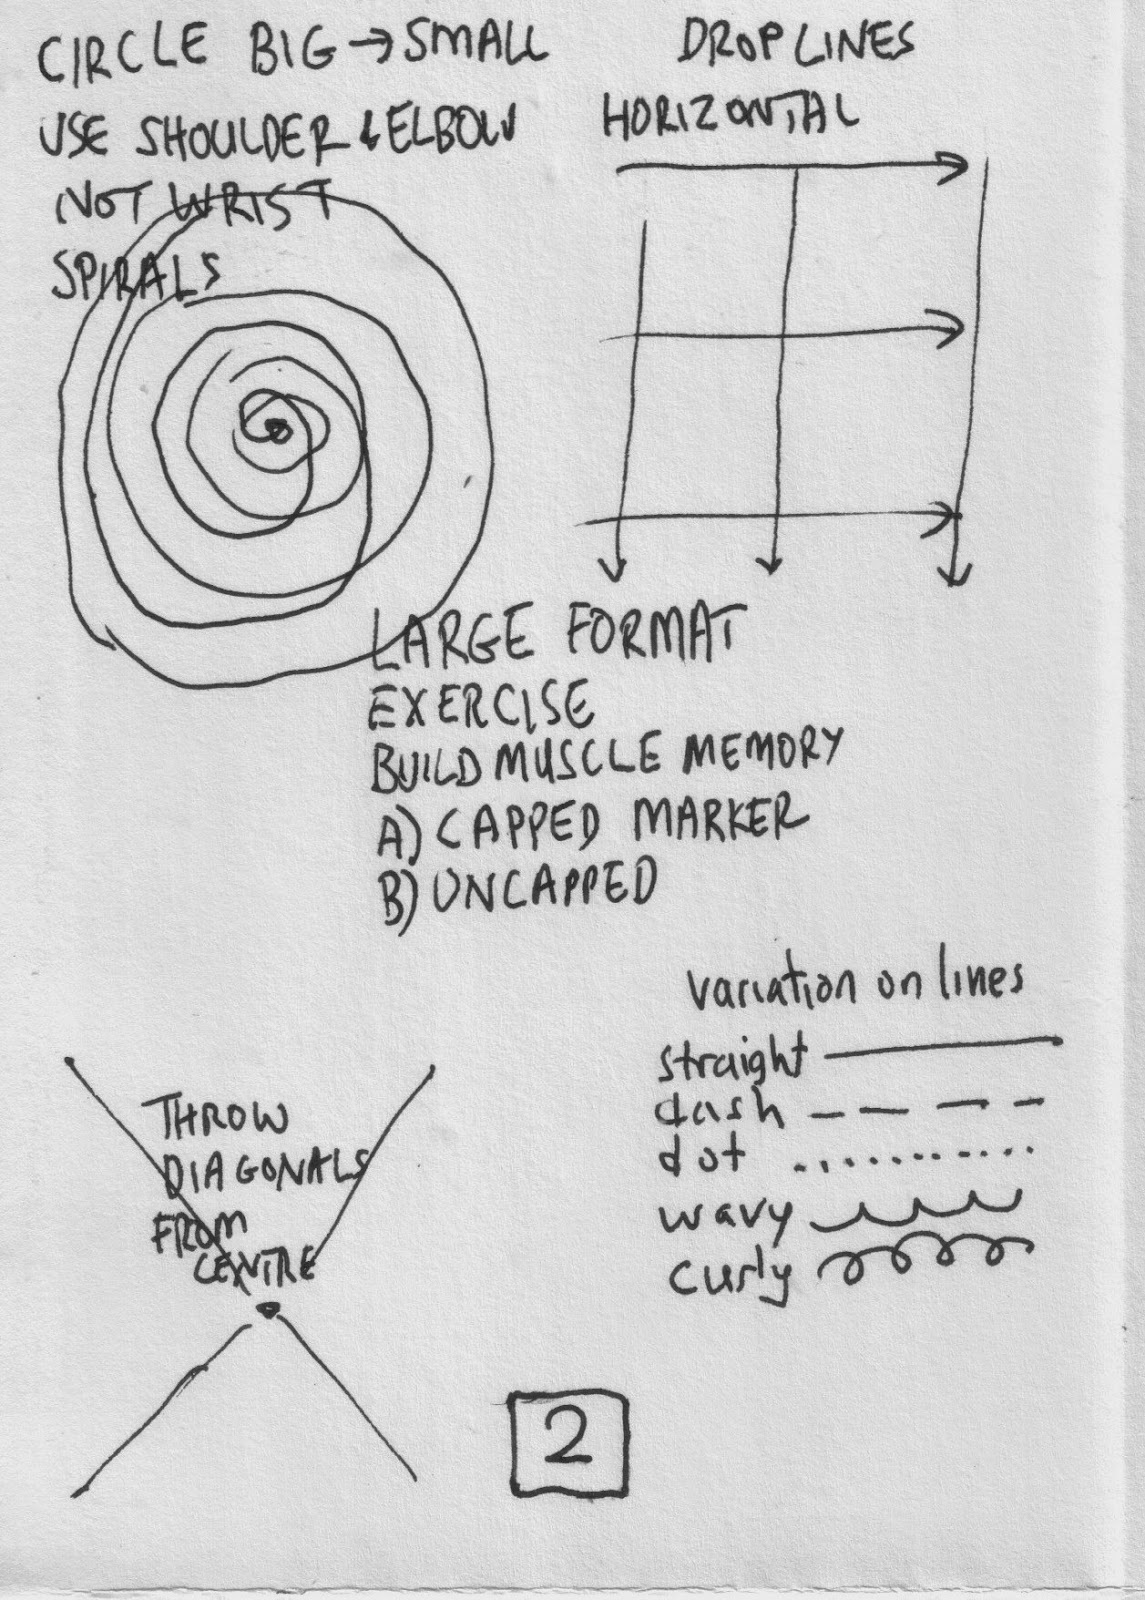 CIRCLE BIG → SMALL
USE SHOULDER & ELBOW
NOT WRIST
SPIRALS
DROP LINES
HORIZONTAL
LARGE FORMAT
EXERCISE
BUILD MUSCLE MEMORY
A) CAPPED MARKER
B) UNCAPPED
variation on lines
straight
dash
dot
wavy
curly
THROW
DIAGONALS
FROM
CENTRE
2